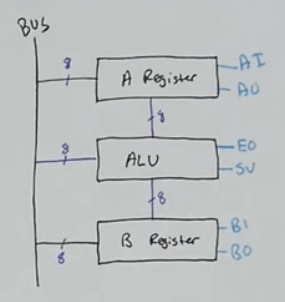 BUS
8
A Register
AI
AO
8
8
ALU
EO
SU
8
8
B Register
BI
BO